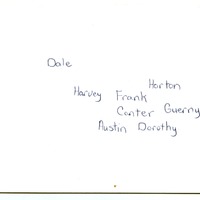 Dale
Horton
Harvey Frank
Conter Guerny
Austin Dorothy